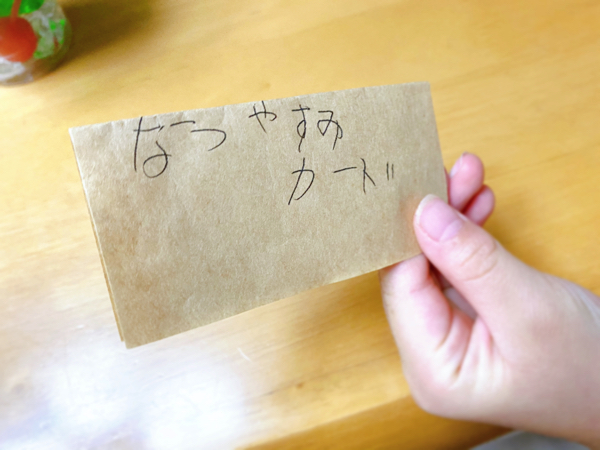 なつやすみ
カード